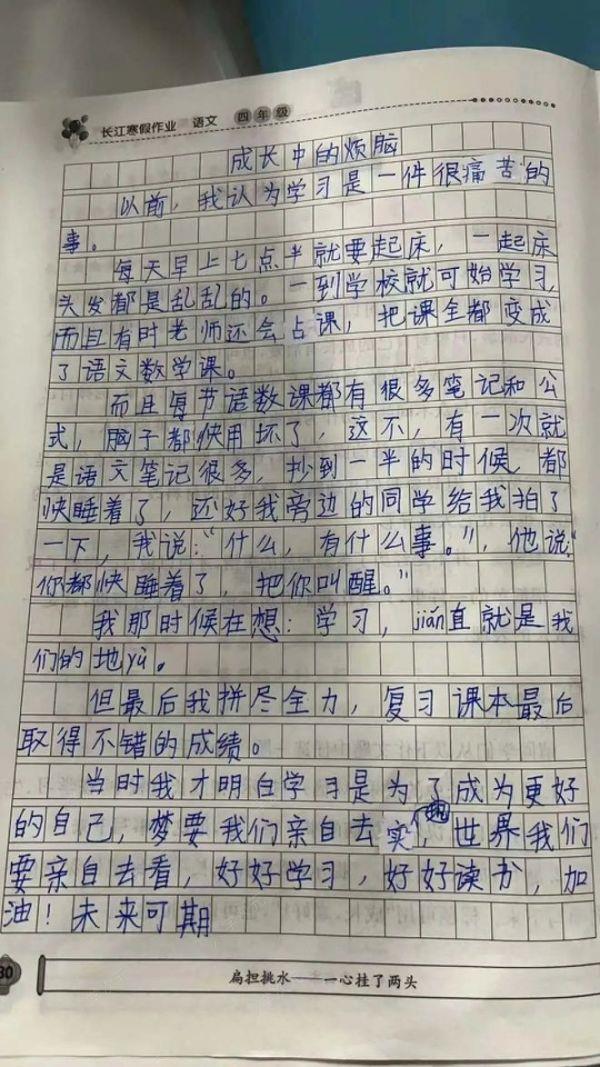 长江寒假作业 语文 四年级
成长中的烦脑
以前，我认为学习是一件很痛苦的
事。
每天早上七点半就要起床，一起床
头发都是乱乱的。一到学校就可始学习，
而且有时老师还会占课，把课全都变成
了语文数学课。
而且每节语数课都有很多笔记和公
式，脑子都快用坏了，这不，有一次就
是语文笔记很多，抄到一半的时候，都
快睡着了，还好我旁边的同学给我拍了
一下，我说：“什么，有什么事。”，他说：“
你都快睡着了，把你叫醒。”
我那时候在想：学习，jiǎn直就是我
们的地yù。
但最后我拼尽全力，复习课本最后
取得不错的成绩。
当时我才明白学习是为了成为更好
的自己，梦要我们亲自去实现，世界我们
要亲自去看，好好学习，好好读书，加
油！未来可期
30
扁担挑水——一心挂了两头